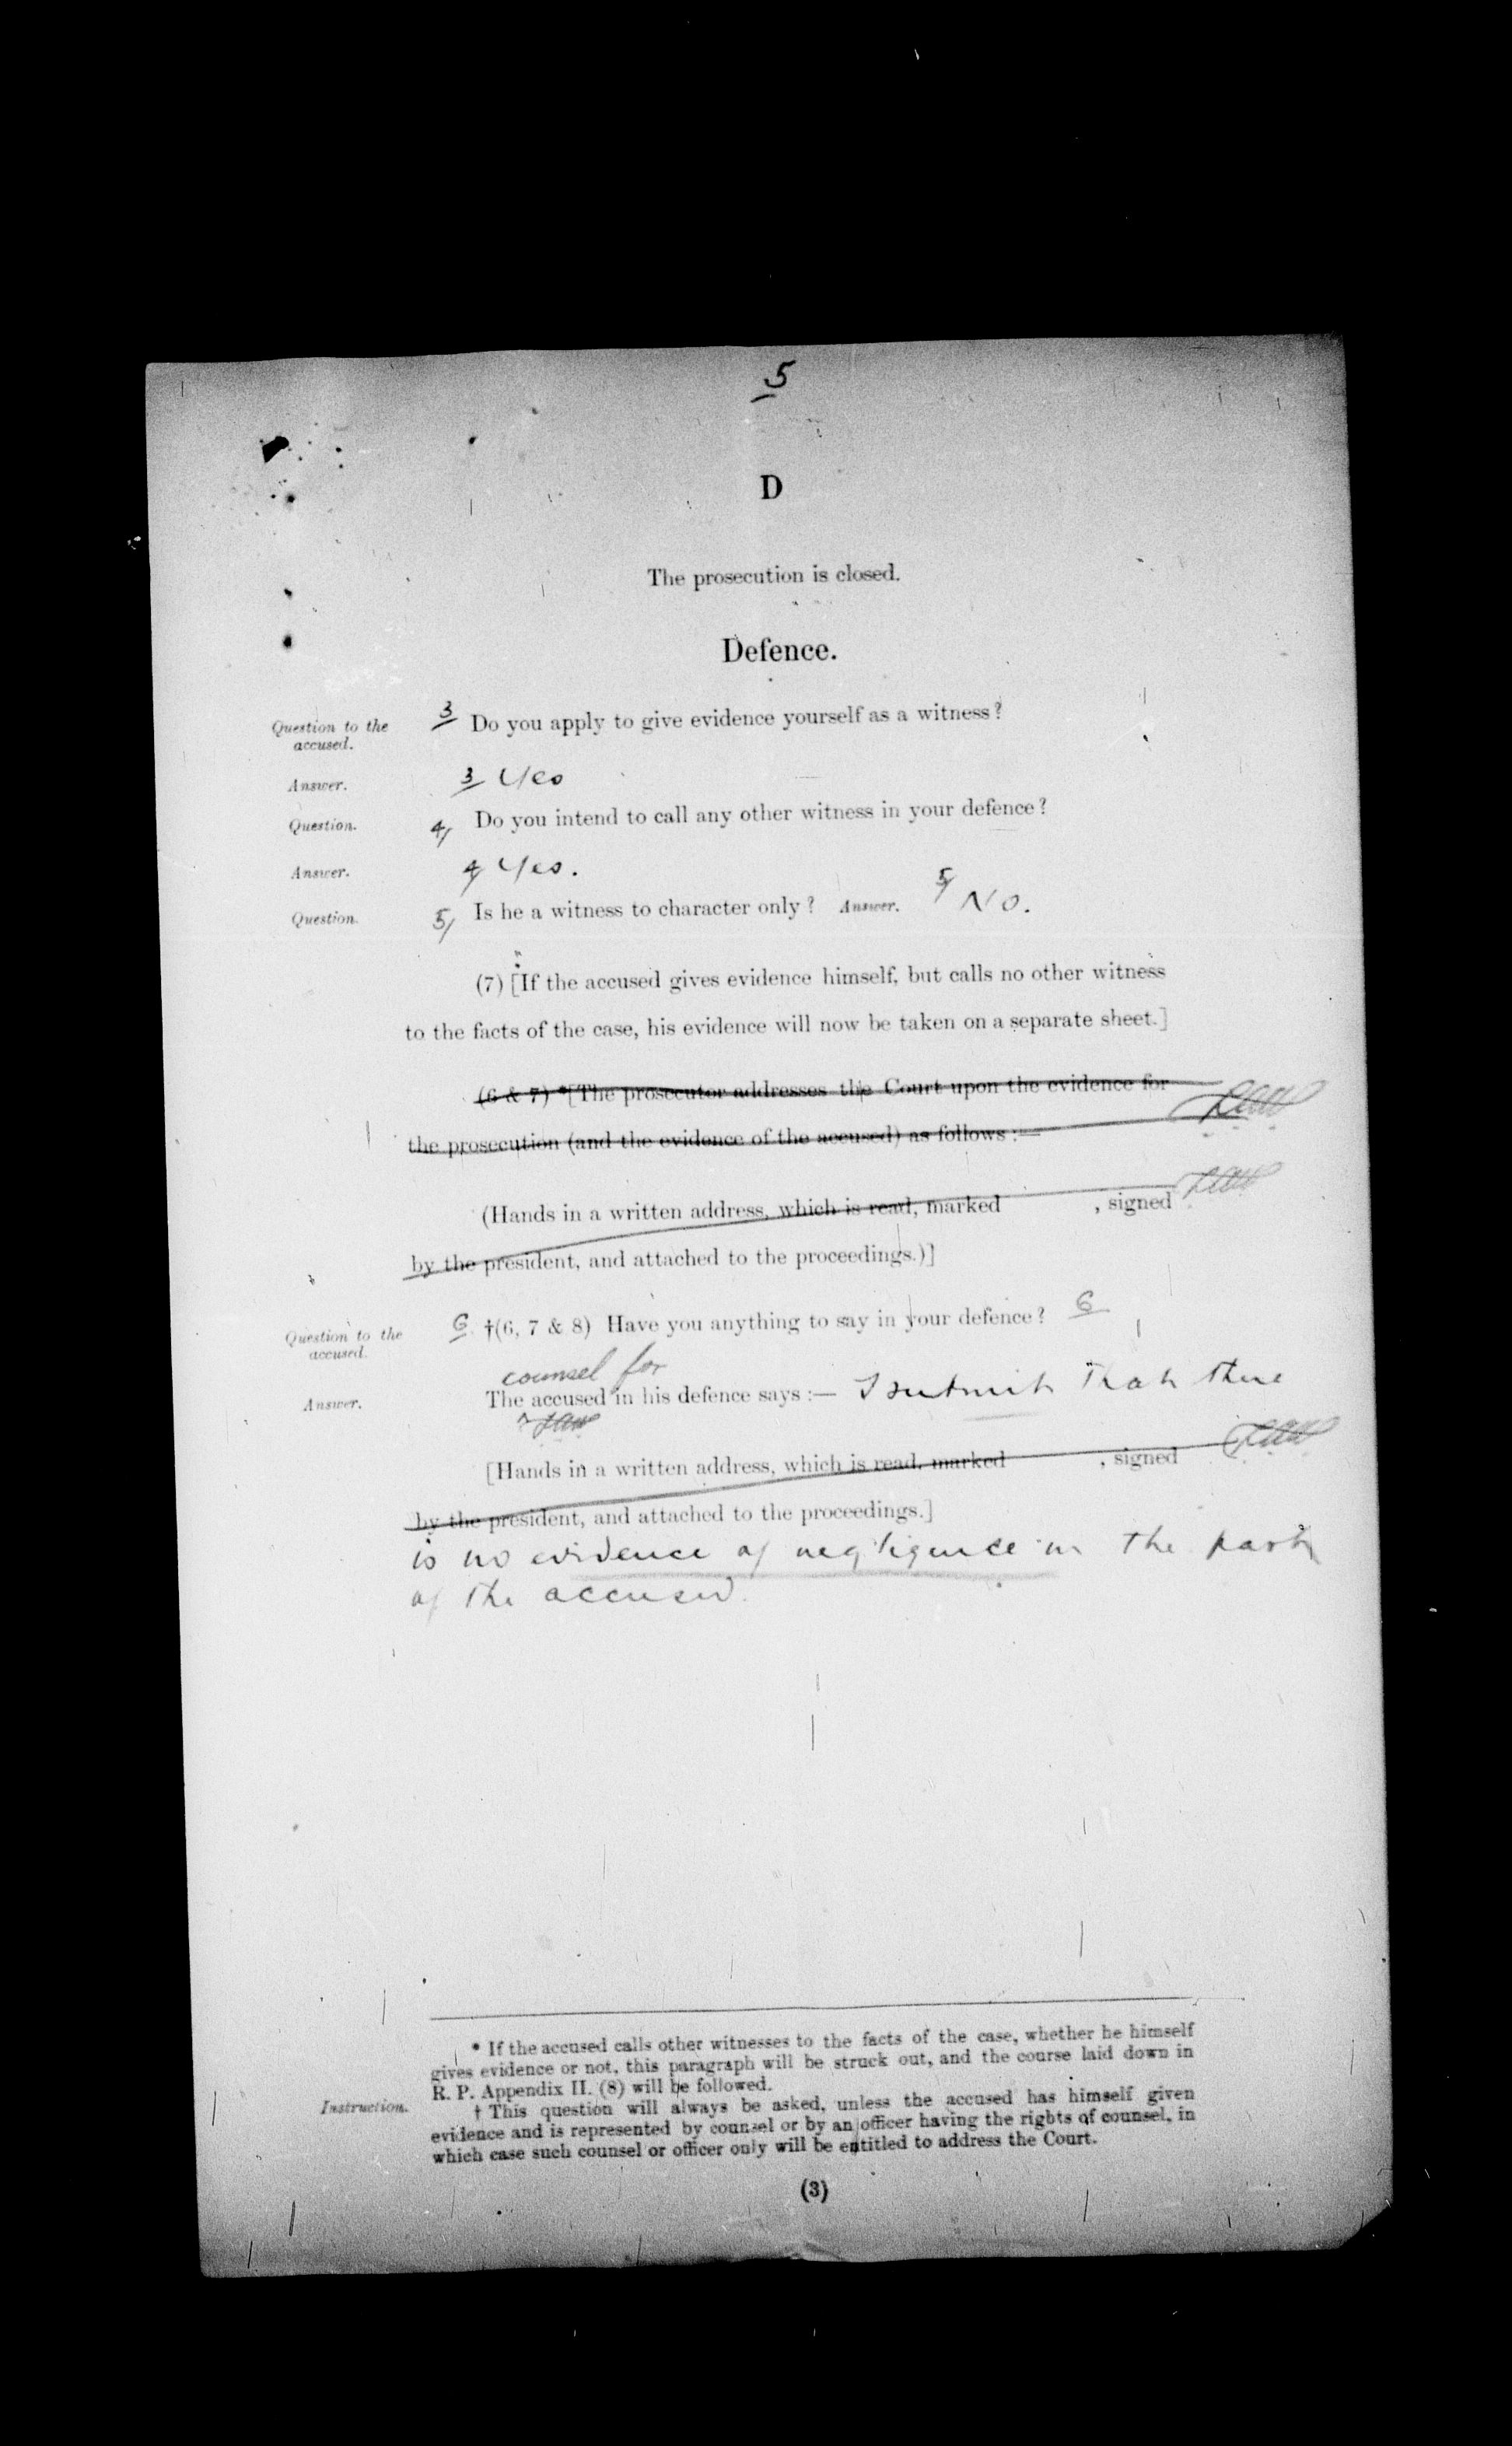 5
D
The prosecution is closed.
Defence.
Question to the accused. 3 Do you apply to give evidence yourself as a witness?
Answer. 3 Yes
Question. 4/ Do you intend to call any other witness in your defence?
Answer. 4/ Yes.
Question. 5/ Is he a witness to character only? Answer. 5/ No.
(7) [If the accused gives evidence himself, but calls no other witness
to the facts of the case, his evidence will now be taken on a separate sheet.]
(6 & 7) *[The prosecutor addresses the Court upon the evidence for
the prosecution (and the evidence of the accused) as follows :—
(Hands in a written address, which is read, marked , signed
by the president, and attached to the proceedings.)]
Question to the accused. 6 †(6, 7 & 8) Have you anything to say in your defence? 6
counsel for
Answer. The accused in his defence says :— I submit that there
[Hands in a written address, which is read, marked , signed
by the president, and attached to the proceedings.]
is no evidence of negligence on the part
of the accused.
* If the accused calls other witnesses to the facts of the case, whether he himself
gives evidence or not, this paragraph will be struck out, and the course laid down in
R. P. Appendix II. (8) will be followed.
Instruction. † This question will always be asked, unless the accused has himself given
evidence and is represented by counsel or by an officer having the rights of counsel, in
which case such counsel or officer only will be entitled to address the Court.
(3)